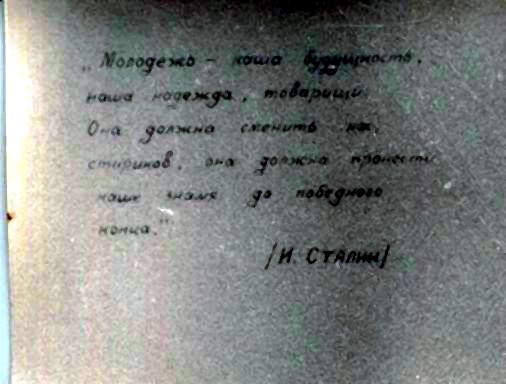 „Молодежь – наша будущность,
наша надежда, товарищи.
Она должна сменить нас,
стариков, она должна пронести
наше знамя до победного
конца."
/И. Сталин/